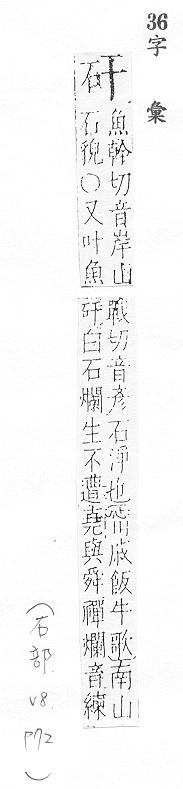 36字 彙
矸
魚幹切音岸山
石貌○又叶魚
戰切音彥石淨也甯戚飯牛歌南山
矸白石爛生不遭堯與舜禪爛音練
(石部. v8. p72)